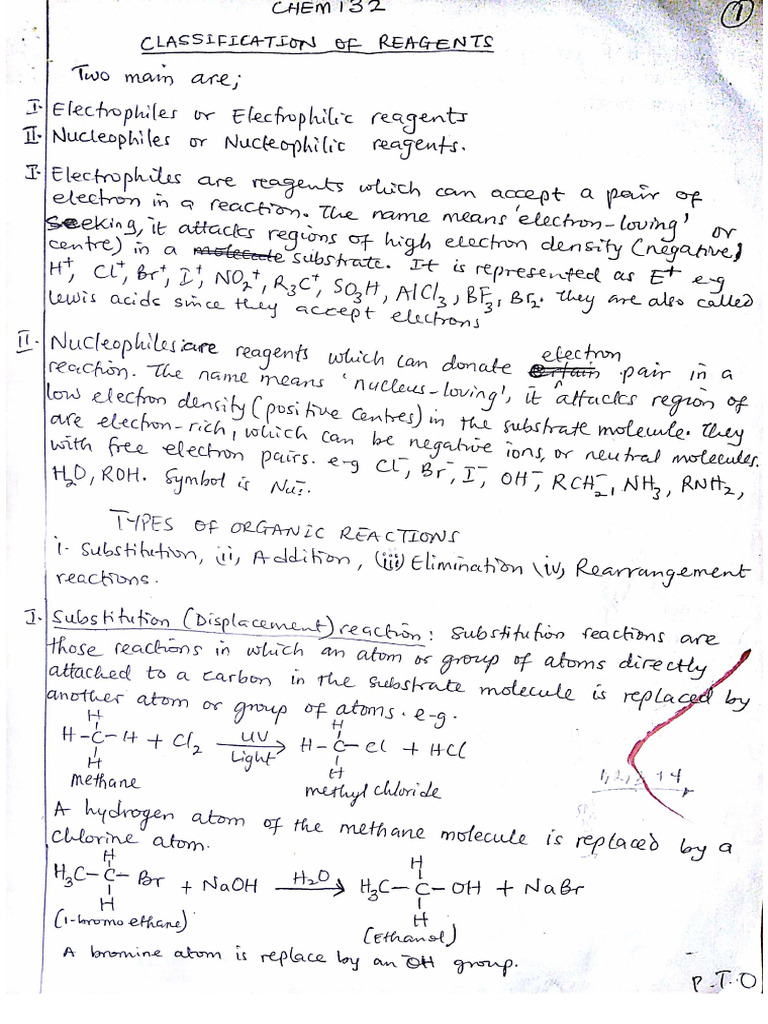 CHEM 132
1
CLASSIFICATION OF REAGENTS
Two main are;
I. Electrophiles or Electrophilic reagents
II. Nucleophiles or Nucleophilic reagents.
I. Electrophiles are reagents which can accept a pair of
electron in a reaction. The name means 'electron-loving' or
Seeking, it attacks regions of high electron density (negative
centre) in a molecule substrate. It is represented as E⁺ e-g
H⁺, Cl⁺, Br⁺, I⁺, NO₂⁺, R₃C⁺, SO₃H, AlCl₃, BF₃, Br₂. They are also called
lewis acids since they accept electrons
II. Nucleophiles are reagents which can donate electron pair in a
reaction. The name means 'nucleus-loving', it attacks region of
low electron density (positive centres) in the substrate molecule. They
are electron-rich, which can be negative ions, or neutral molecules.
with free electron pairs. e-g Cl⁻, Br⁻, I⁻, OH⁻, RCH₂⁻, NH₃, RNH₂,
H₂O, ROH. Symbol is Nu:⁻.
TYPES OF ORGANIC REACTIONS
i. Substitution, ii, Addition, (iii) Elimination \iv, Rearrangement
reactions.
I. Substitution (Displacement) reaction: Substitution reactions are
those reactions in which an atom or group of atoms directly
attached to a carbon in the substrate molecule is replaced by
another atom or group of atoms. e-g.
H H
H-C-H + Cl₂ UV Light → H-C-Cl + HCl
H H
methane methyl chloride
1, 2, 3 + 4
A hydrogen atom of the methane molecule is replaced by a
chlorine atom.
H H
H₃C-C-Br + NaOH H₂O → H₃C-C-OH + NaBr
H H
(1-bromo ethane) (Ethanol)
A bromine atom is replace by an OH group.
P.T.O